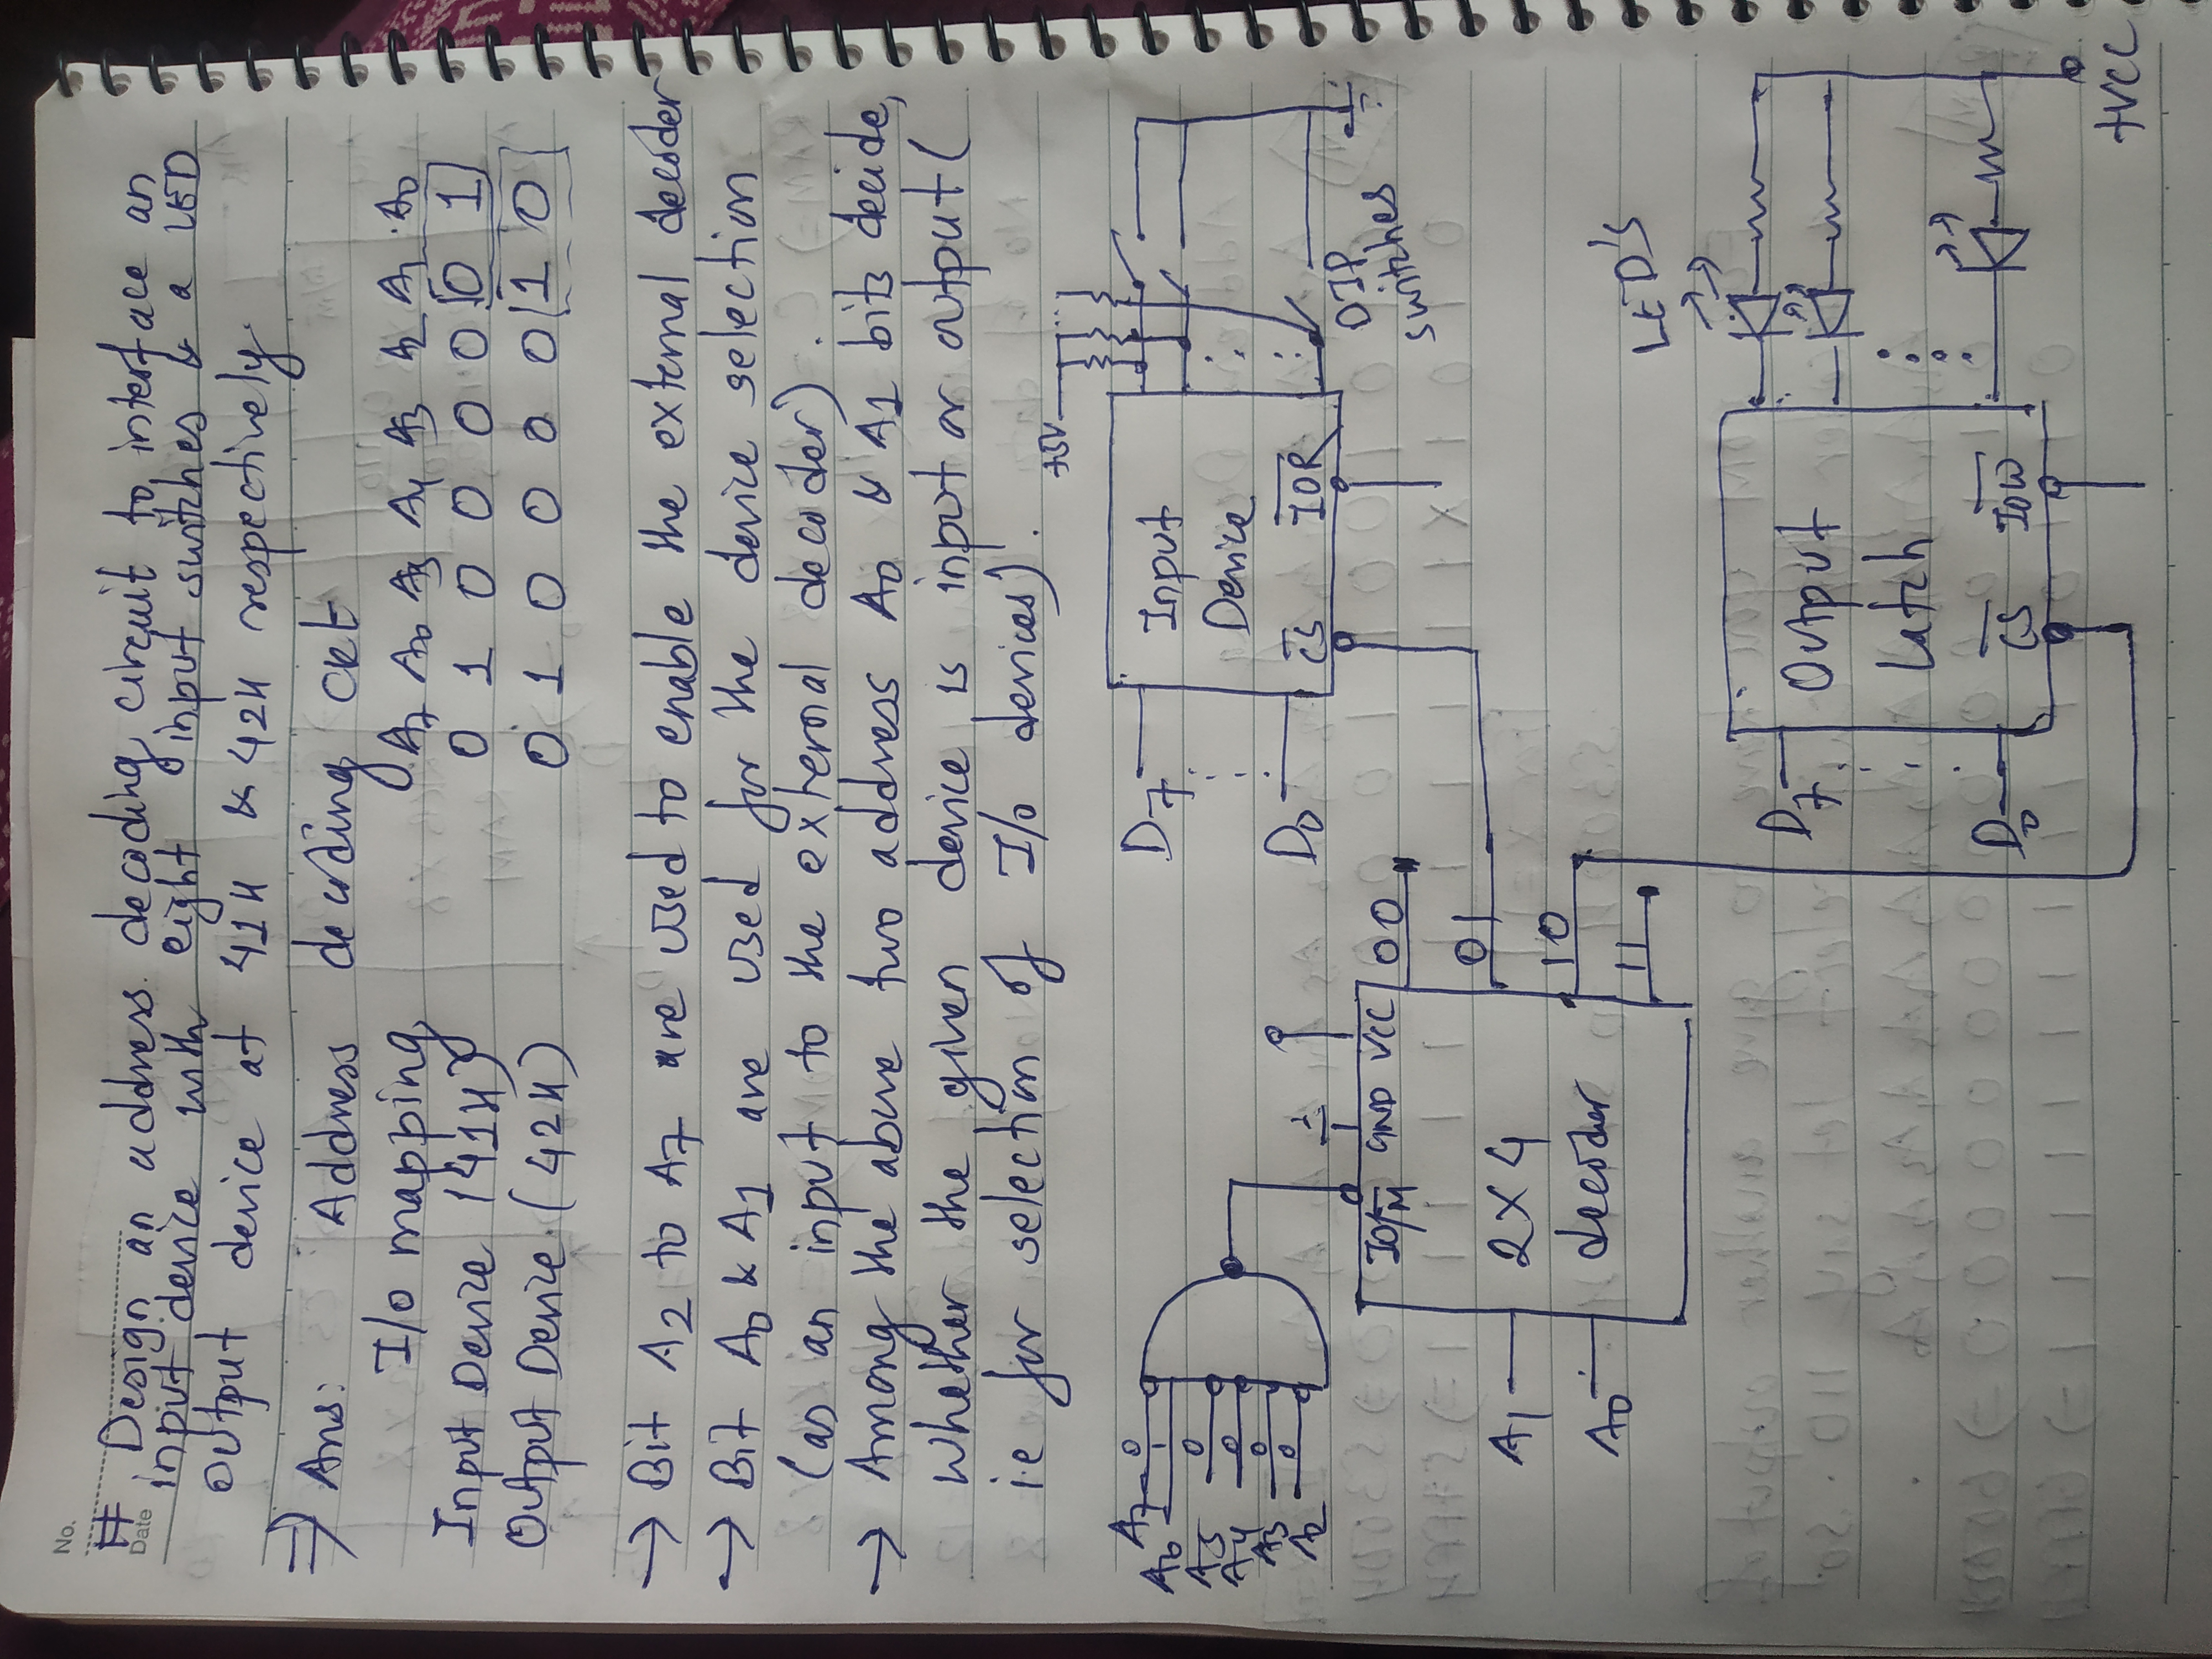 No.
Date
# Design an address decoding circuit to interface an
input device with eight input switches & a LED
output device at 41H & 42H respectively
⇒ Ans: Address decoding ckt
I/O mapping A7 A6 A5 A4 A3 A2 A1 A0
Input Device (41H) 0 1 0 0 0 0 0 1
Output Device (42H) 0 1 0 0 0 0 1 0
→ Bit A2 to A7 are used to enable the external decoder
→ Bit A0 & A1 are used for the device selection
(as an input to the external decoder).
→ Among the above two address A0 & A1 bits decide,
whether the given device is input or output (
i.e for selection of I/O devices).
+5V
A7 0
A6 1
A5 0
A4 0
A3 0
A2 0
D7
D0
Input
Device
C̅S̅ I̅O̅R̅
DIP
switches
IO/M̅ GND VCC
A1
A0
2X4
decoder
00
01
10
11
LED'S
D7
D0
Output
Latch
C̅S̅ I̅O̅W̅
+VCC